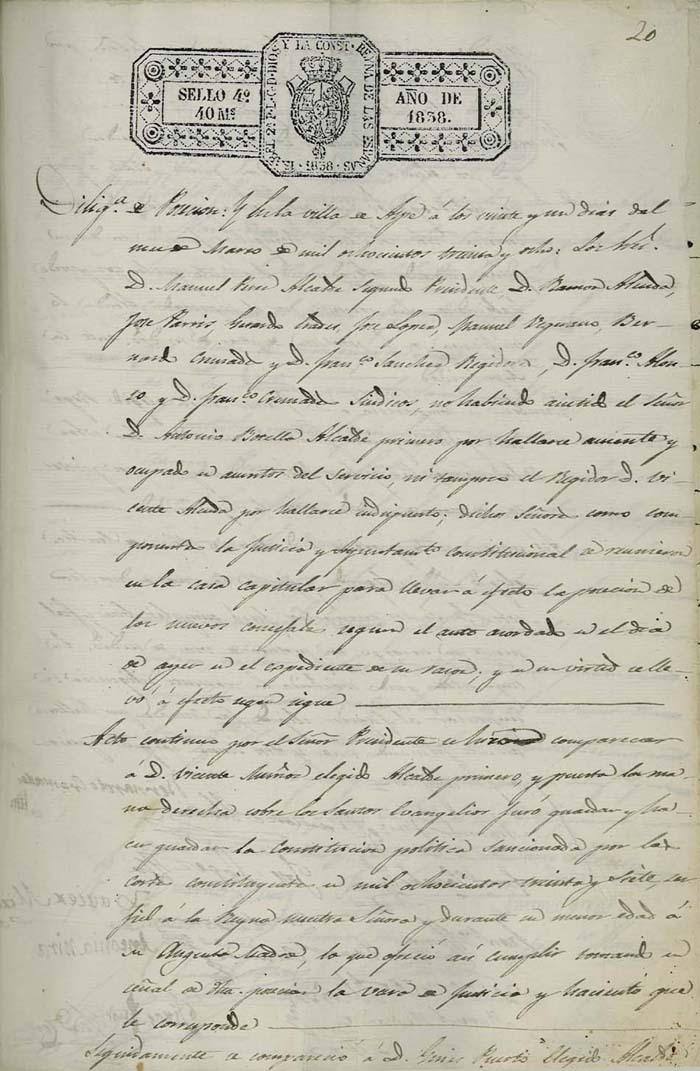 20
SELLO 4º
40 Ms
ISABEL 2ª P. L. G. D. DIOS Y LA CONST. REYNA DE LAS ESPAÑAS · 1838 ·
AÑO DE
1838.
Diligª de Posecion: Y En la villa de Aspe á los veinte y un dias del
mes de Marzo de mil ochocientos treinta y ocho: Los Sres.
D. Manuel Alcalde Segundo Presidente, D. Ramon Alcada,
Jose Parris, Gerardo Jose Lopez, Manuel Ber-
nardo Cremades y D. Franco Sanchez Regidores, D. Franco Alon-
so y D. Franco Cremades Sindicos, no habiendo asistido el Señor
D. Antonio Botella Alcalde primero por hallarse ausente y
ocupado en asuntos del servicio, ni tampoco el Regidor D. Vi-
cente por hallarse indispuesto; dichos Señores como com-
ponentes la Justicia y Ayuntamto Constitucional se reunieron
en la casa capitular para llevar á efecto la posecion de
los nuevos concejales segun el auto acordado en el dia
de ayer en el expediente de su razon; y en su virtud se lle-
vó á efecto segun sigue
Acto continuo por el Señor Presidente se hizo comparecer
á D. Vicente Muñoz elegido Alcalde primero, y puesta la ma-
no derecha sobre los Santos Evangelios Juró guardar y ha-
cer guardar la Constitucion politica sancionada por las
Cortes constituyentes en mil ochocientos treinta y siete, ser
fiel á la Reyna nuestra Señora y durante su menor edad á
su Augusta Madre, lo que ofreció asi cumplir tomando en
señal de dha. posecion la vara de Justicia y haciento que
le corresponde
Seguidamente se compareció á D. Gines Puerto elegido Alcalde